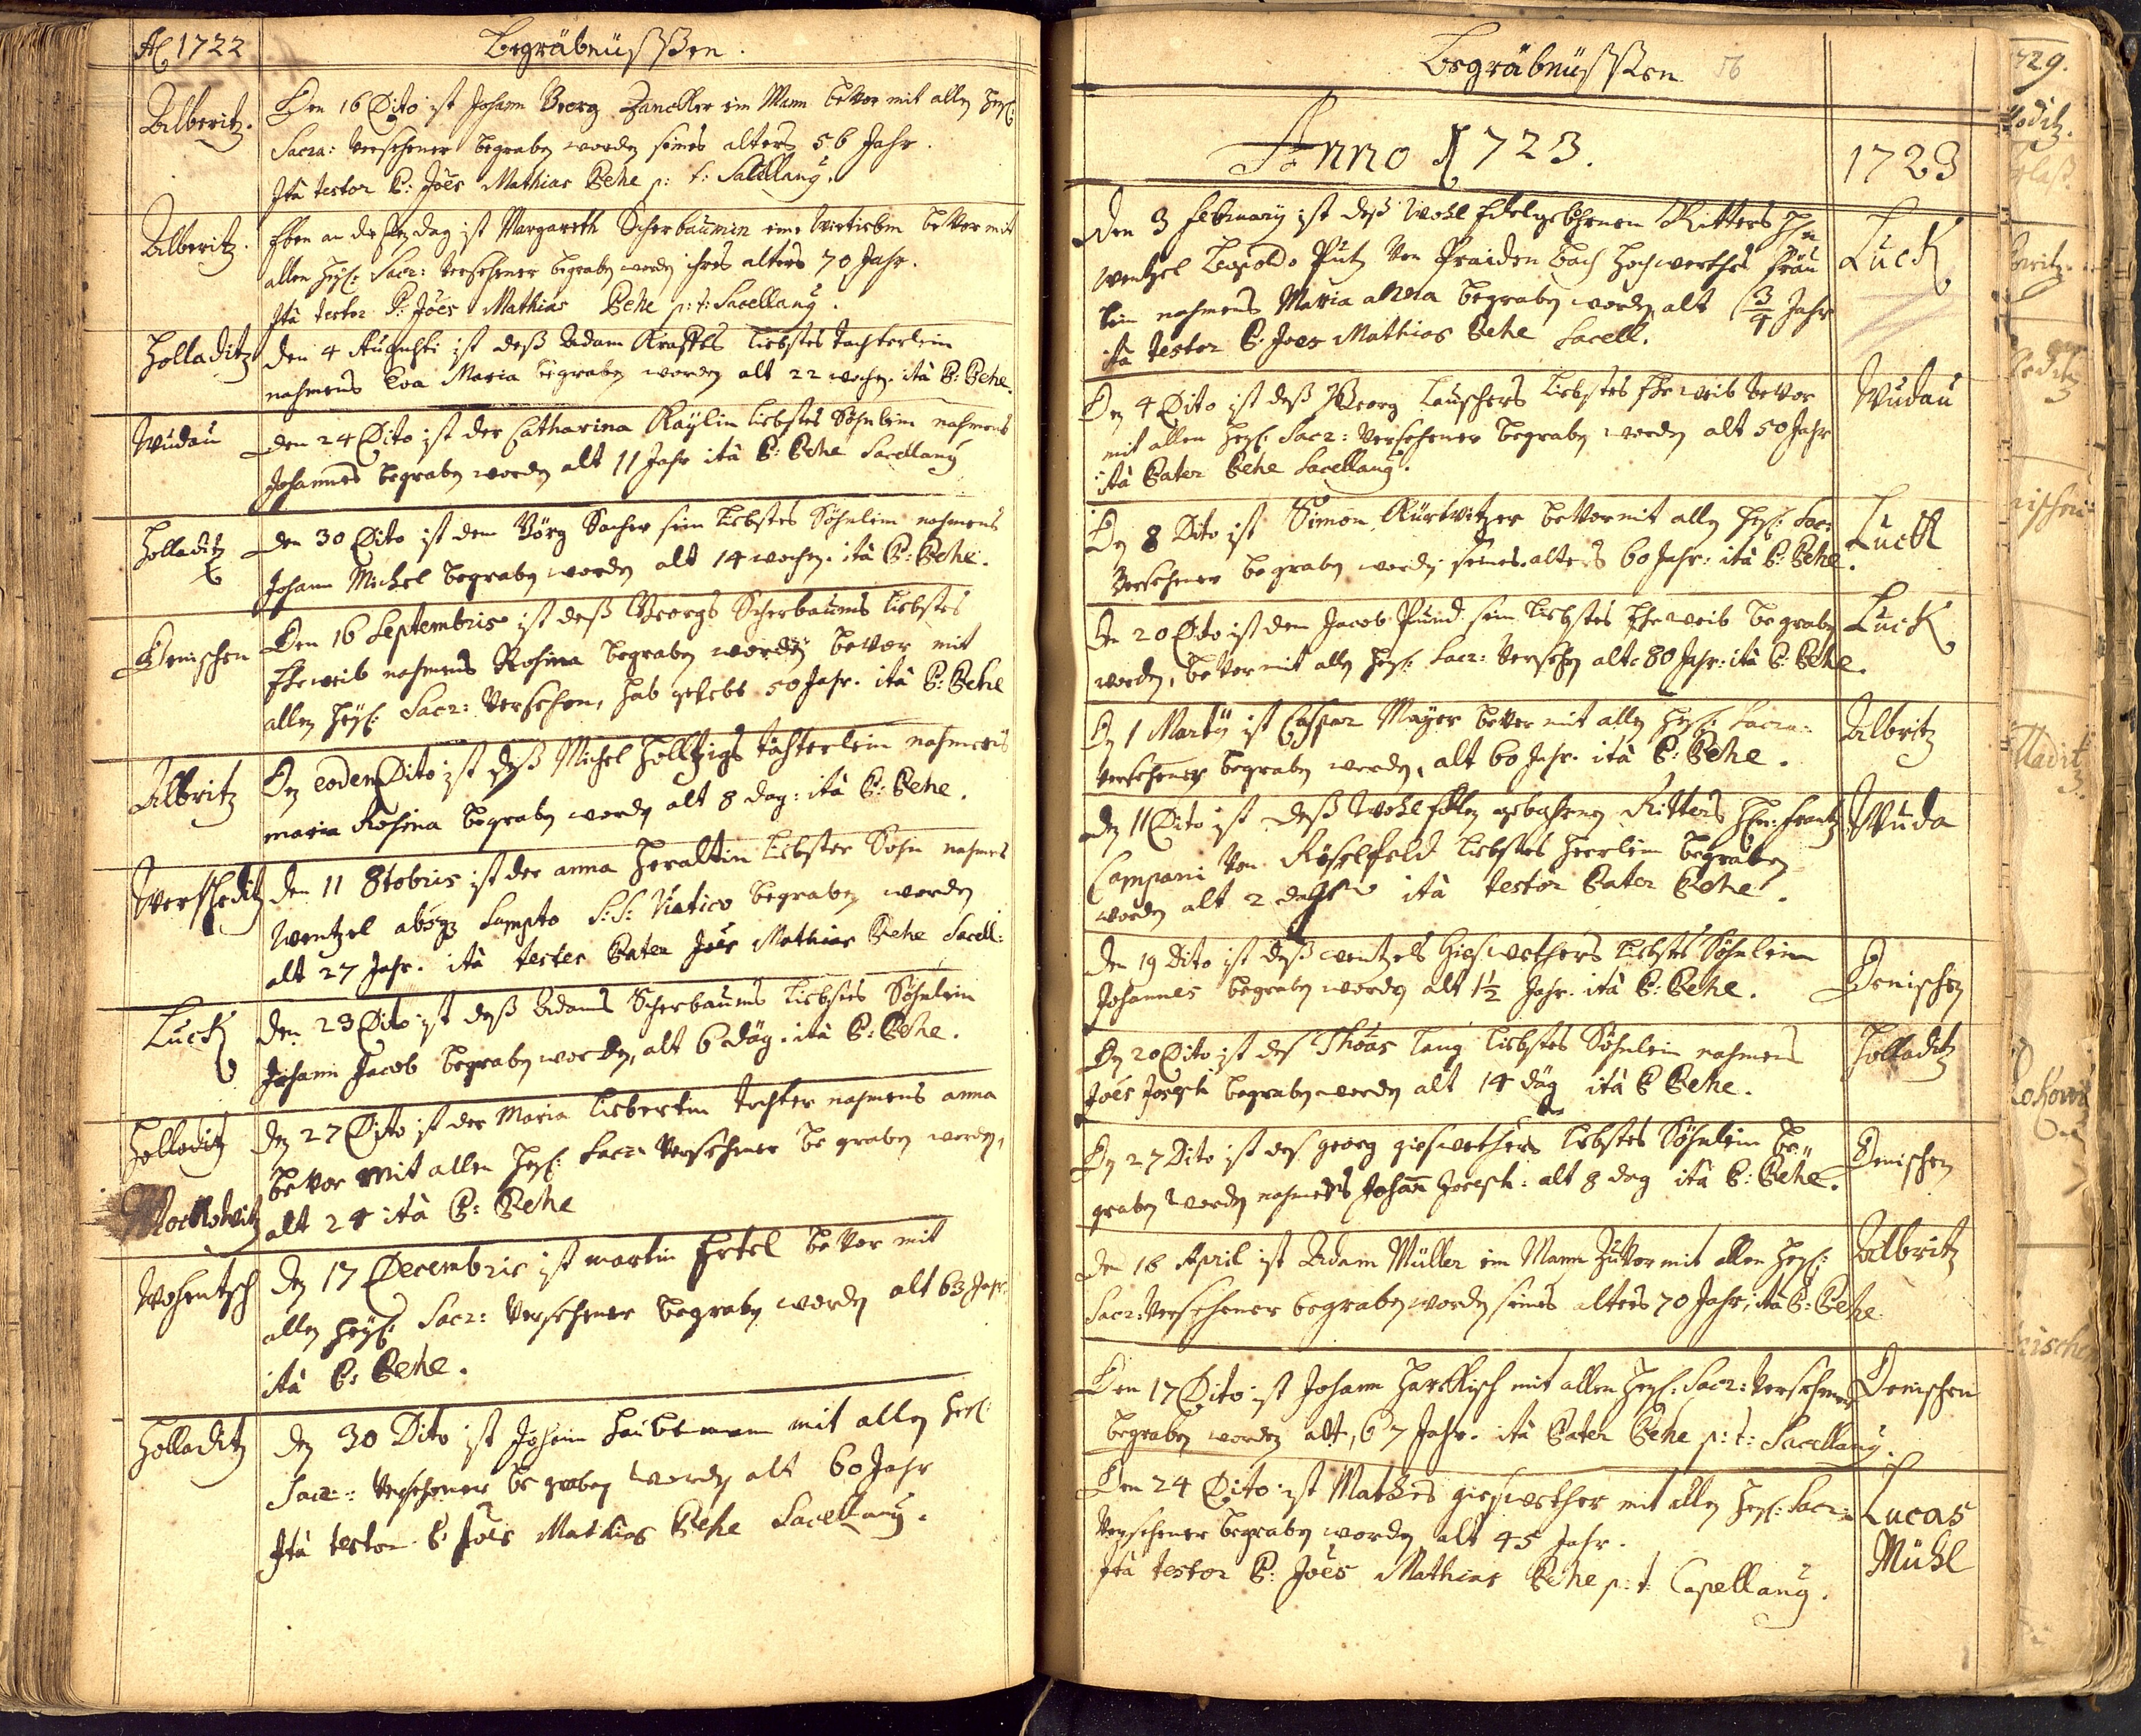 Ao 1722
Begräbnüssßen.
Alberitz.
Den 16 Dito ist Johann Georg Zanckler ein Mann bevor mit allen heyl:
Sacra: versehener begraben worden seines alters 56 Jahr.
Ità testor P: Joês Mathias Behe p: t: Sacellanû.
Alberitz.
Eben an diesen dag ist Margareth Scherbaumin eine bevor mit
allen heyl: Sacr: versehener begraben worden ihres alters 70 Jahr.
Ità testor P: Joês Mathias Behe p: t: Sacellanû.
Holladitz
den 4 Augusti ist deß Adam liebstes tochterlein
nahmens Eva Maria begraben worden alt 22 wochen. ità P: Behe.
Wudau
den 24 Dito ist der Catharina Kaÿlin liebstes Söhnlein nahmens
Johannes begraben worden alt 11 Jahr ità P: Behe Sacellanû
Holladitz
den 30 Dito ist dem Görg Sacher sein liebstes Söhnlein nahmens
Johann Michel begraben worden alt 14 wochen. ità P: Behe.
Denischen
Den 16 Septembris ist deß Georgs Scherbaums liebstes
Eheweib nahmens Rosina begraben worden bevor mit
allen heyl: Sacr: versehen, hab gelebt 50 Jahr. ità P: Behe
Albritz
Den eodem Dito ist deß Michel Holltzigs töchterlein nahmens
maria Rosina begraben worden alt 8 dag: ità P: Behe.
Wertscheditz
den 11 8tobris ist der anna Heraltin liebster Sohn nahmens
Wentzel absq3 Sumpto S: S: Viatico begraben worden
alt 27 Jahr. ità testor Pater Joês Mathias Behe Sacell:
Luck
den 23 Dito ist deß Adams Scherbaums liebstes Söhnlein
Johann Jacob begraben worden, alt 6 däg. ità P: Behe.
Holladitz
den 27 Dito ist der Maria liebertin tochter nahmens anna
bevor mit allen heyl: Sacr: versehener begraben worden,
alt 24 ità P: Behe
Wohentsch
den 17 Decembris ist martin Ertel bevor mit
allen heyl: Sacr: versehener begraben worden alt 63 Jahr.
ità P: Behe.
Holladitz
den 30 Dito ist Johann Haubtmann mit allen heyl:
Sacr: versehener begraben worden alt 60 Jahr
Ità testor P: Joês Mathias Behe Sacellanû.
Begräbnüssßen 56
Anno 1723.
1723
Den 3 februarÿ ist deß Wohl Edelgebohrnen Ritters Hn
Wentzel Leopoldo Putz von Braiden bach hochwerthes fräu
lein nahmens Maria anna begraben worden alt 3/4 Jahr
ità testor P: Joes Mathias Behe Sacell.
Luck
Den 4 Dito ist deß Georg Lauschers liebstes Eheweib bevor
mit allen heyl: Sacr: versehener begraben worden alt 50 Jahr
ità Pater Behe Sacellanû.
Wudau
Den 8 Dito ist Simon Kürtwitzer bevor mit allen heyl: Sac:
versehener begraben worden seines alters 60 Jahr: ità P: Behe.
Luck
Den 20 Dito ist dem Jacob Pund sein liebstes Eheweib begraben
worden, bevor mit allen heyl: Sacr: versehen alt 80 Jahr. ità P: Behe.
Luck
Den 1 Martÿ ist Caspar Maÿer bevor mit allen heyl: Sacra:
versehener begraben worden, alt 60 Jahr. ità P: Behe.
Albritz
den 11 Dito ist deß Wohl Edlen gebohrnen Ritters Hn: frantz
Campani von Röselfeld liebstes herrlein begraben
worden alt 2 ità testor Pater Behe.
Wuda
den 19 Dito ist deß wentzels Giesswethers liebstes Söhnlein
Johannes begraben worden alt 1½ Jahr. ità P: Behe.
Denischen
Den 20 Dito ist des Thoas lang liebstes Söhnlein nahmens
Joês Joseph begraben worden alt 14 däg ità P Behe.
Holladitz
Den 27 Dito ist des georg giesswethers liebstes Söhnlein be„
graben worden nahmens Johañ Joseph: alt 8 dag ità P: Behe.
Denischen
Den 16 April ist Adam Müller ein Mann zuvor mit allen heyl:
Sacr: versehener begraben worden seines alters 70 Jahr, ità P: Behe
Albritz
Den 17 Dito ist Johann Harckisch mit allen heyl: Sacr: versehener
begraben worden alt, 67 Jahr. ità Pater Behe p: t: Sacellanû.
Denischen
Den 24 Dito ist Mathes giesswether mit allen heyl: Sacr:
versehener begraben worden alt 45 Jahr.
Ità testor P: Joês Mathias Behe p: t: Capellanû.
Lucas
Mühl